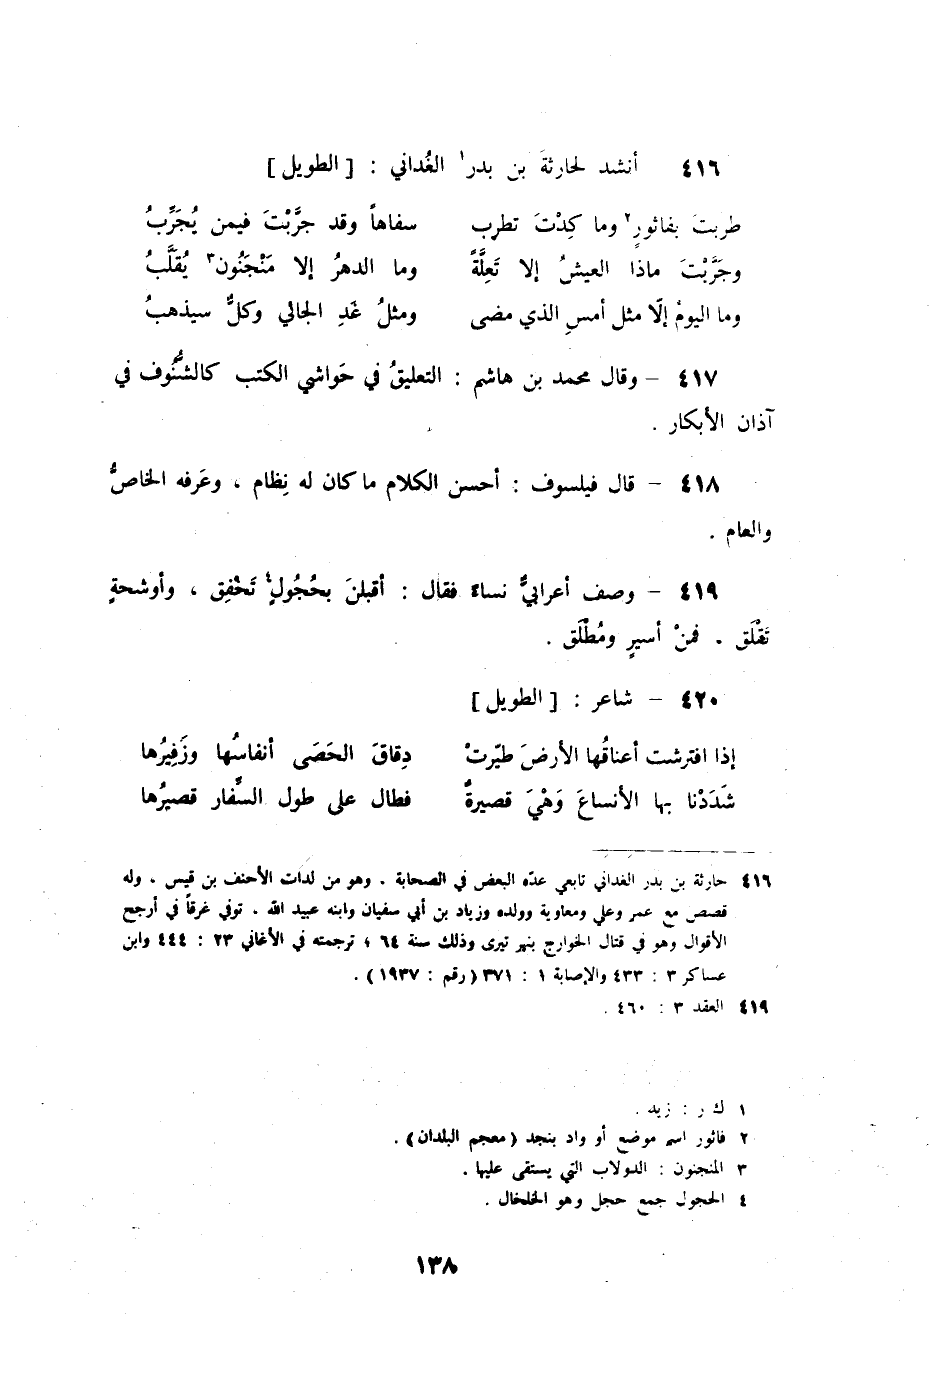 ٤١٦ أنشد لحارثةَ بن بدر١ الغُداني : [ الطويل ]
طربتَ بفاثورٍ٢ وما كِدْتَ تطرب سفاهاً وقد جرَّبْتَ فيمن يُجَرِّبُ
وجَرَّبْتَ ماذا العيشُ إلا تَعِلَّةً وما الدهرُ إلا مَنْجَنُون٣ يُقَلَّبُ
وما اليومْ إلّا مثل أمسِ الذي مضى ومثلُ غَدِ الجائي وكلٌّ سيذهبُ
٤١٧ – وقال محمد بن هاشم : التعليقُ في حَواشي الكتب كالشُّنُوف في
آذان الأبكار .
٤١٨ – قال فيلسوف : أحسن الكلام ما كان له نِظام ، وعَرفه الخاصُّ
والعام .
٤١٩ – وصف أعرابيٌّ نساء فقال : أقبلنَ بحُجُولٍ٤ تَخْفِق ، وأوشحةٍ
تَقْلَق . فمنْ أسيرٍ ومُطْلَق .
٤٢٠ – شاعر : [ الطويل ]
إذا افترشت أعناقُها الأرضَ طيّرتْ دِقاقَ الحَصَى أنفاسُها وزَفِيرُها
شَدَدْنا بها الأنساعَ وَهْيَ قصيرةٌ فطال على طول السِّفار قصيرُها
٤١٦ حارثة بن بدر الغداني تابعي عدّه البعض في الصحابة . وهو من لدات الأحنف بن قيس . وله
قصص مع عمر وعلي ومعاوية وولده وزياد بن أبي سفيان وابنه عبيد الله . توفي غرقاً في أرجح
الأقوال وهو في قتال الخوارج بنهر تيرى وذلك سنة ٦٤ ؛ ترجمته في الأغاني ٢٣ : ٤٤٤ وابن
عساكر ٣ : ٤٣٣ والإصابة ١ : ٣٧١ ( رقم : ١٩٣٧ ) .
٤١٩ العقد ٣ : ٤٦٠ .
١ ك ر : زيد .
٢ فاثور اسم موضع أو واد بنجد ( معجم البلدان ) .
٣ المنجنون : الدولاب التي يستقى عليها .
٤ الحجول جمع حجل وهو الخلخال .
١٣٨